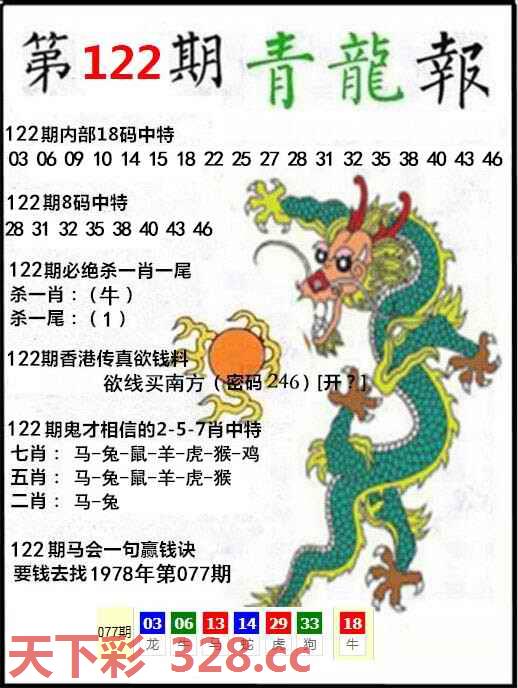 第122期青龍報
122期内部18码中特
03 06 09 10 14 15 18 22 25 27 28 31 32 35 38 40 43 46
122期8码中特
28 31 32 35 38 40 43 46
122期必绝杀一肖一尾
杀一肖：（牛）
杀一尾：（1）
122期香港传真欲钱料
欲线买南方（密码246）[开？]
122期鬼才相信的2-5-7肖中特
七肖： 马-兔-鼠-羊-虎-猴-鸡
五肖： 马-兔-鼠-羊-虎-猴
二肖： 马-兔
122期马会一句赢钱诀
要钱去找1978年第077期
077期 03 06 13 14 29 33 18
龙 牛 马 蛇 虎 狗 牛
天下彩 328.cc